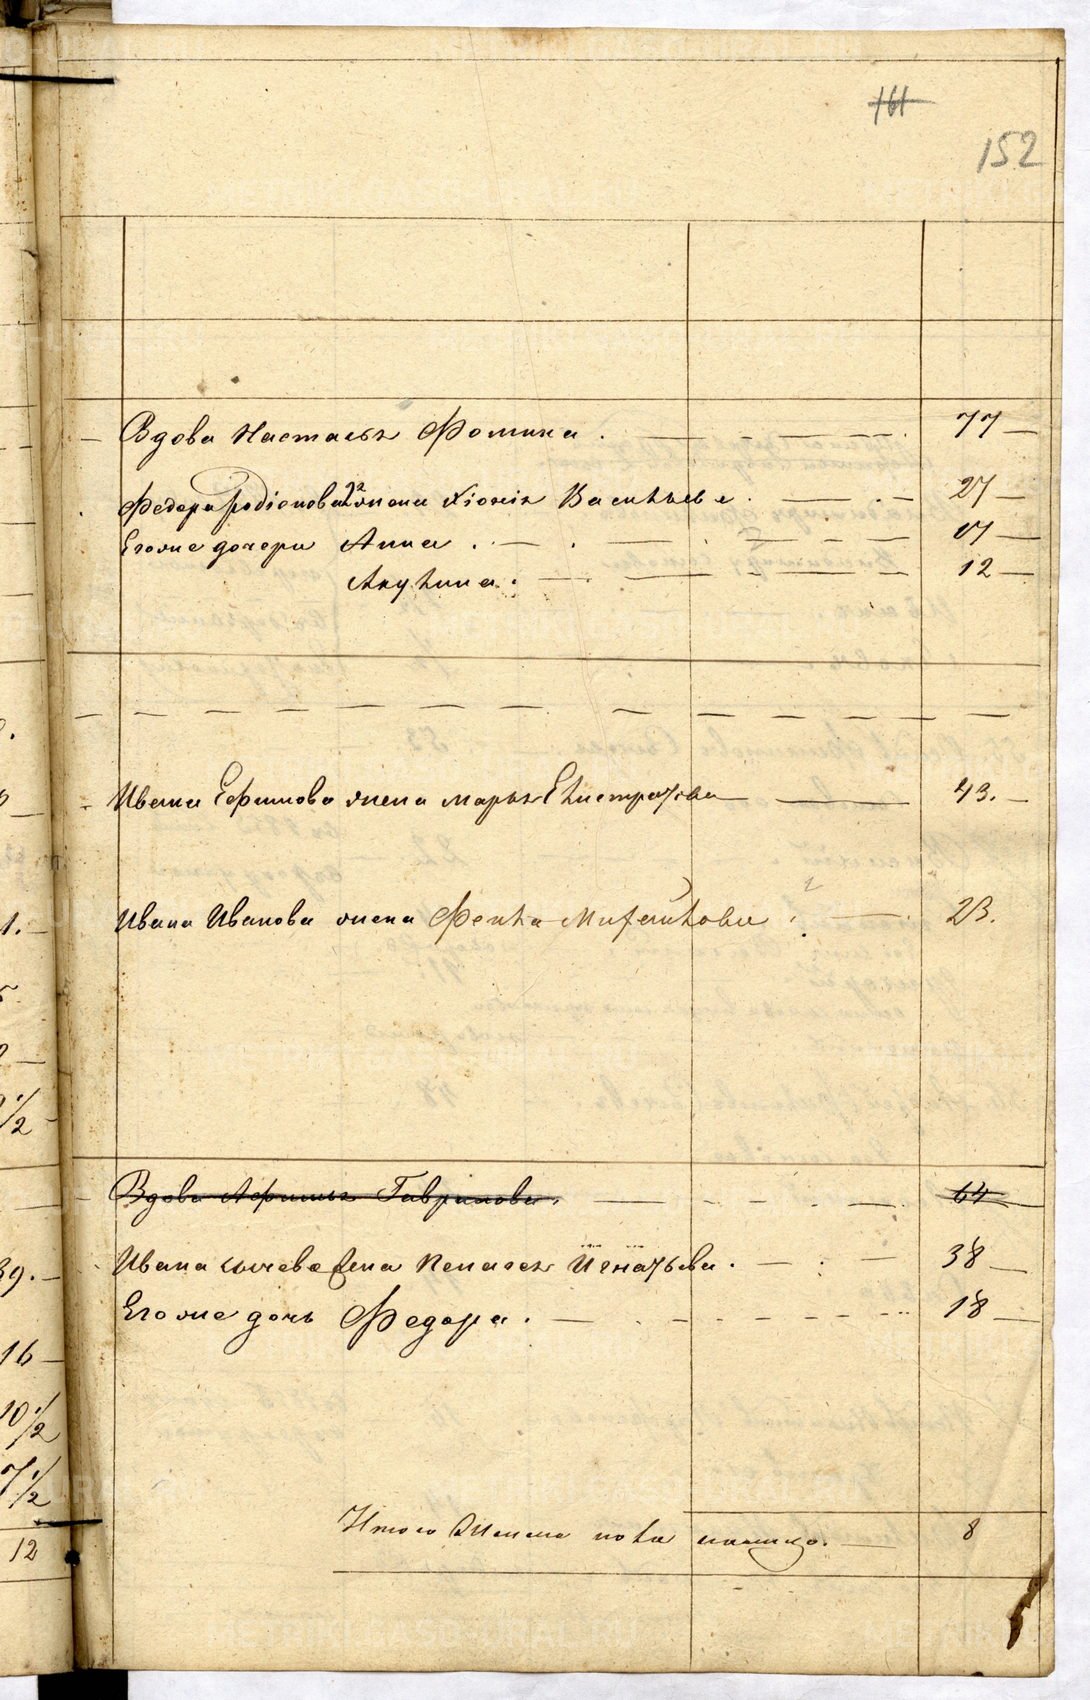 161
152
Вдова Настасья Фомина 77
Федора Родіонова 2я жена Хіонія Васильева 27
Его же дочери Анна 17
Акулина 12
Ивана Ефимова жена Марья Елистратова 43.
Ивана Иванова жена Фекла Михайлова 23.
Вдова Афимья Гаврилова. 64
Ивана жена Пелагея Игнатьева. 38
Его же дочь Федора. 18
Итого женска пола налицо. 8
1.
2
1/2
39.
16
10 1/2
7 1/2
12